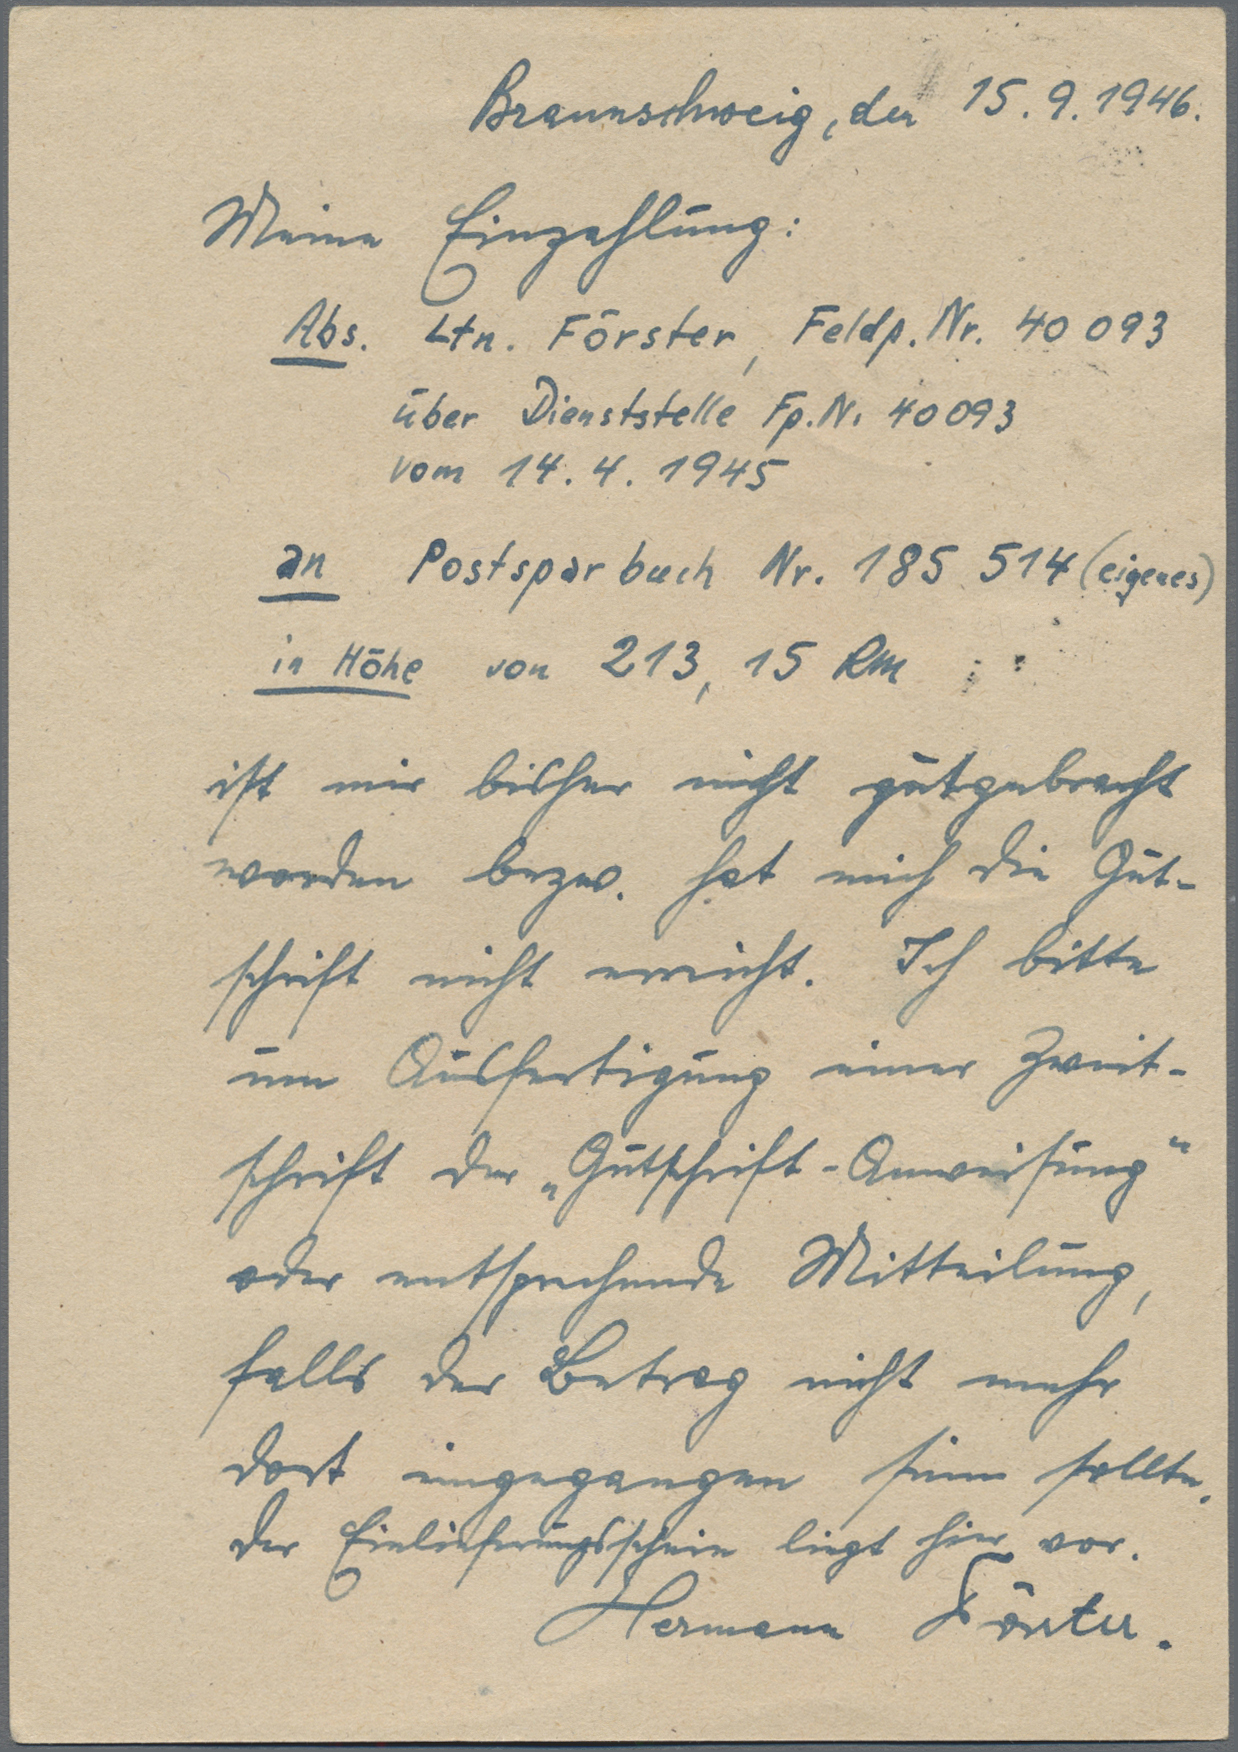 Braunschweig, den 15.9.1946.
Meine Einzahlung:
Abs. Ltn. Förster, Feldp. Nr. 40 093
über Dienststelle Fp. N. 40093
vom 14. 4. 1945
an Postsparbuch Nr. 185 514 (eigenes)
in Höhe von 213,15 RM
ist mir bisher nicht gutgebracht
worden bezw. hat mich die Gut-
schrift nicht erreicht. Ich bitte
um Ausfertigung einer Zweit-
schrift der „Gutschrift-Anweisung“
oder entsprechende Mitteilung,
falls der Betrag nicht mehr
dort eingegangen sein sollte.
Der Einlieferungsschein liegt hier vor.
Hermann Förster.